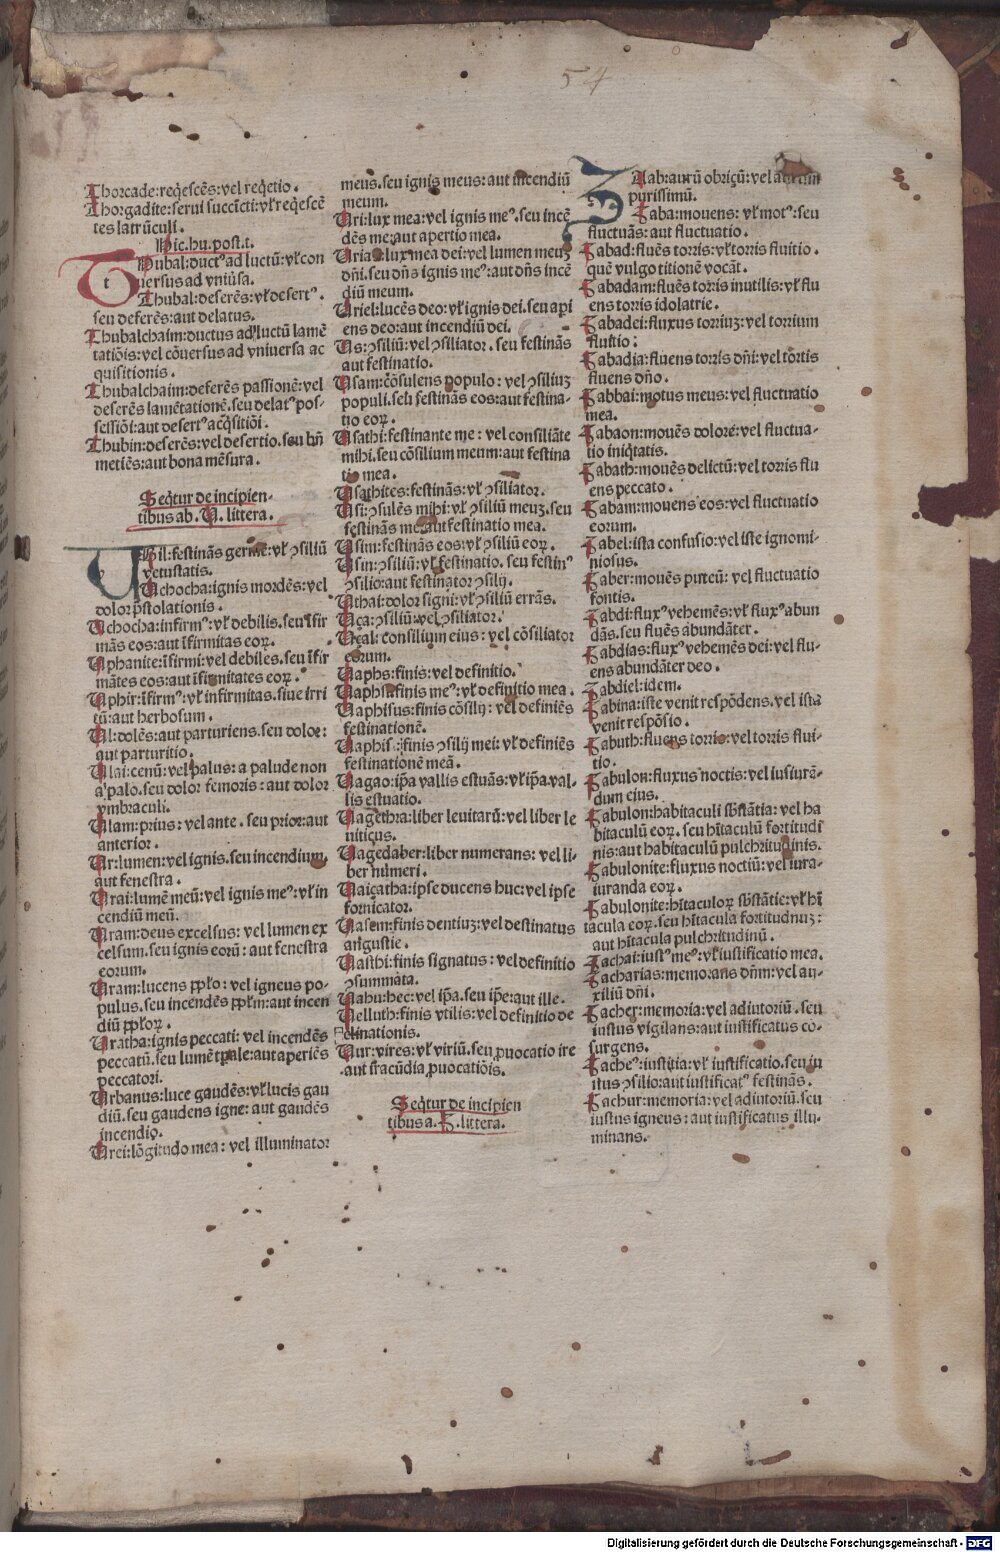 54
Thorcade:reqͥescēs:vel reqͥetio.
Thorgadite:serui succīcti:vł reqͥescē
tes latrūculi.
Hic.hu.post.t.
THubal:ductꝰ ad luctū:vł con
uersus ad vniūsa.
Thubal:deserēs:vł desertꝰ.
seu deferēs:aut delatus.
Thubalchaim:ductus ad luctū lamē
tatiōis:vel cōuersus ad vniuersa ac
quisitionis.
Thubalchaim:deferēs passionē:vel
deserēs lamētationē.seu delatꝰ pos-
sessiōi:aut desertꝰ acqͥsitiōi.
Thubin:deserēs:vel desertio.seu bn̄
metiēs:aut bona mēsura.
Seqͥtur de incipien-
tibus ab.V.littera.
VBil:festinās germē:vł ꝯsiliū
vetustatis.
Vchocha:ignis mordēs:vel
dolor p̄stolationis.
Vchocha:infirmꝰ:vł debilis.seu īfir
mās eos:aut īfirmitas eoꝝ.
Vphanite:īfirmi:vel debiles.seu īfir
mātes eos:aut īfirmitates eoꝝ.
Vphir:īfirmꝰ:vł infirmitas.siue irri
tū:aut herbosum.
Vl:dolēs:aut parturiens.seu dolor:
aut parturitio.
Vlai:cenū:vel palus:a palude non
a palo.seu dolor femoris:aut dolor
vmbraculi.
Vlam:prius:vel ante.seu prior:aut
anterior.
Vr:lumen:vel ignis.seu incendium,
aut fenestra.
Vrai:lumē meū:vel ignis meꝰ:vł in
cendiū meū.
Vram:deus excelsus:vel lumen ex
celsum.seu ignis eorū:aut fenestra
eorum.
Vram:lucens pp̄lo:vel igneus po-
pulus.seu incendēs pp̄lm:aut incen
diū pp̄loꝝ.
Vratha:ignis peccati:vel incendēs
peccatū.seu lumē :aut aperiēs
peccatori.
Vrbanus:luce gaudēs:vł lucis gau
diū.seu gaudens igne:aut gaudēs
incendio.
Vrei:lōgitudo mea:vel illuminator
meus.seu ignis meus:aut incendiū
meum.
Vri:lux mea:vel ignis meꝰ.seu incē
dēs me:aut apertio mea.
Vria:lux mea dei:vel lumen meuꝫ
dn̄i.seu dn̄s ignis meꝰ:aut dn̄s incē
diū meum.
Vriel:lucēs deo:vł ignis dei.seu api
ens deo:aut incendiū dei.
Vs:ꝯsiliū:vel ꝯsiliator.seu festinās
aut festinatio.
Vsam:cōsulens populo:vel ꝯsiliuꝫ
populi.seu festinās eos:aut festina-
tio eoꝝ.
Vsathi:festinante me:vel consiliāte
mihi.seu cōsilium meum:aut festina
tio mea.
Vsathites:festinās:vł ꝯsiliator.
Vsi:ꝯsulēs mihi:vł ꝯsiliū meuꝫ.seu
festinās me:aut festinatio mea.
Vsim:festinās eos:vł ꝯsiliū eoꝝ.
Vsin:ꝯsiliū:vł festinatio.seu festinꝰ
ꝯsilio:aut festinator ꝯsilij.
Vthai:dolor signi:vł ꝯsiliū errās.
Vça:ꝯsiliū:vel ꝯsiliator.
Vçal:consilium eius:vel cōsiliator
eorum.
Vaphs:finis:vel definitio.
Vaphsi:finis meꝰ:vł definitio mea.
Vaphisus:finis cōsilij:vel definiēs
festinationē.
Vaphisi:finis ꝯsilij mei:vł definiēs
festinationē meā.
Vagao:ip̄a vallis estuās:vł ip̄a val-
lis estuatio.
Vagethra:liber leuitarū:vel liber le
uiticus.
Vagedaber:liber numerans:vel li-
ber numeri.
Vaiçatha:ipse ducens huc:vel ipse
fornicator.
Vasem:finis dentiuꝫ:vel destinatus
angustie.
Vasthi:finis signatus:vel definitio
ꝯsummata.
Vahu:hec:vel ip̄a.seu ip̄e:aut ille.
Velluth:finis vtilis:vel definitio de
clinationis.
Vur:vires:vł viriū.seu ꝓuocatio ire
.aut iracūdia ꝓuocatiōis.
Seqͥtur de incipien
tibus a.Z.littera.
ZAab:aurū obriçū:vel aurum
purissimū.
Zaba:mouens:vł motꝰ:seu
fluctuās:aut fluctuatio.
Zabad:fluēs torris:vł torris fluitio.
quē vulgo titionē vocāt.
Zabadam:fluēs torris inutilis:vł flu
ens torris idolatrie.
Zabadei:fluxus torriuꝫ:vel torrium
fluitio:
Zabadia:fluens torris dn̄i:vel torris
fluens dn̄o.
Zabbai:motus meus:vel fluctuatio
mea.
Zabaon:mouēs dolorē:vel fluctua-
tio iniqͥtatis.
Zabath:mouēs delictū:vel torris flu
ens peccato.
Zabam:mouens eos:vel fluctuatio
eorum.
Zabel:ista confusio:vel iste ignomi-
niosus.
Zaber:mouēs puteū:vel fluctuatio
fontis.
Zabdi:fluxꝰ vehemēs:vł fluxꝰ abun
dās.seu fluēs abundāter.
Zabdias:fluxꝰ vehemēs dei:vel flu-
ens abundāter deo.
Zabdiel:idem.
Zabina:iste venit respōdens.vel ista
venit respōsio.
Zabuth:fluens torris:vel torris flui-
tio.
Zabulon:fluxus noctis:vel iusiurā-
dum eius.
Zabulon:habitaculi sb̄stātia:vel ha
bitaculū eoꝝ.seu hītaculū fortitudi
nis:aut habitaculū pulchritudinis.
Zabulonite:fluxus noctiū:vel iura-
iuranda eoꝝ.
Zabulonite:hītaculoꝝ sb̄stātie:vł hī
tacula eoꝝ.seu hītacula fortitudinuꝫ:
aut hītacula pulchritudinū.
Zachai:iustꝰ meꝰ:vł iustificatio mea.
Zacharias:memorans dn̄m:vel au-
xiliū dn̄i.
Zacher:memoria:vel adiutoriū.seu
iustus vigilans:aut iustificatus cō-
surgens.
Zacheꝰ:iustitia:vł iustificatio.seu iu
stus ꝯsilio:aut iustificatꝰ festinās.
Zachur:memoria:vel adiutoriū.seu
iustus igneus:aut iustificatus illu-
minans.
Digitalisierung gefördert durch die Deutsche Forschungsgemeinschaft - DFG